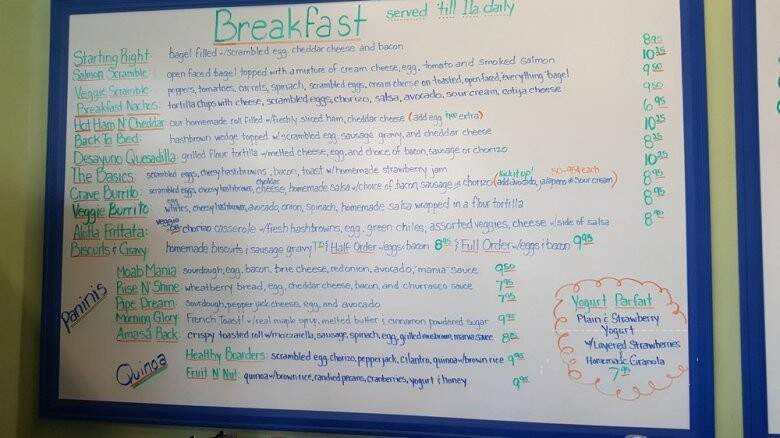 Breakfast served 'till 11a daily
Starting Right: bagel filled w/scrambled egg, cheddar cheese and bacon 8.95
Salmon Scramble: open faced bagel topped with a mixture of cream cheese, egg, tomato and smoked salmon 10.25
Veggie Scramble: peppers, tomatoes, carrots, spinach, scrambled eggs, cream cheese on toasted, open faced, everything bagel 9.50
Breakfast Nachos: tortilla chips with cheese, scrambled eggs, chorizo, salsa, avocado, sour cream, cotija cheese 9.50
Hot Ham N' Cheddar: our homemade roll filled w/freshly sliced ham, cheddar cheese (add egg extra) 6.95
Back To Bed: hashbrown wedge topped w/scrambled egg, sausage gravy, and cheddar cheese 10.25
Desayuno Quesadilla: grilled flour tortilla w/melted cheese, egg, and choice of bacon, sausage or chorizo 8.25
The Basics: scrambled eggs, cheesy hashbrowns, bacon, toast w/homemade strawberry jam 10.25
Crave Burrito: scrambled eggs, cheesy hashbrowns, cheddar cheese, homemade salsa w/choice of bacon, sausage or chorizo (kick it up! add avocado, jalapeño or sour cream) 50-95¢ each 8.95
Veggie Burrito: egg whites, cheesy hashbrowns, avocado, onion, spinach, homemade salsa wrapped in a flour tortilla 8.95
Frittata: veggie or chorizo casserole w/fresh hashbrowns, egg, green chiles, assorted veggies, cheese w/side of salsa 8.95
Biscuits & Gravy: homemade biscuits & sausage gravy Half Order w/eggs & bacon 8.95 Full Order w/eggs & bacon 9.95
Paninis
Moab Mania sourdough, egg, bacon, brie cheese, red onion, avocado, 'mania' sauce 9.50
Rise N' Shine wheatberry bread, egg, cheddar cheese, bacon, and churrasco sauce 7.95
Pipe Dream sourdough, pepper jack cheese, egg, and avocado 7.95
Morning Glory French Toast! w/real maple syrup, melted butter & cinnamon powdered sugar
Amasa Back crispy toasted roll w/mozzarella, sausage, spinach, egg, grilled mushroom, mania sauce
Quinoa
Healthy Boarders: scrambled egg, chorizo, pepper jack, cilantro, quinoa w/brown rice 9.95
Fruit N Nut: quinoa w/brown rice, candied pecans, cranberries, yogurt & honey 9.95
Yogurt Parfait
Plain & Strawberry
Yogurt
w/Layered Strawberries
&
Homemade Granola
7.95